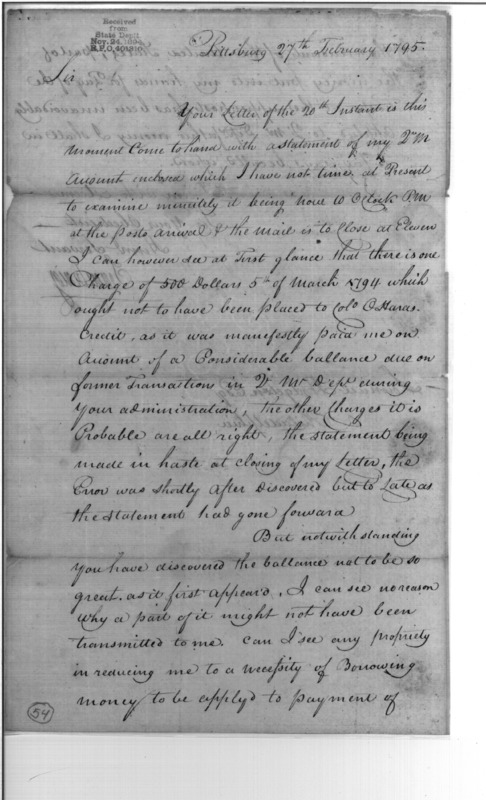 Received
from
State Dept.
Nov. 24, 1894
R.P.O. 401210
Pittsburg 27th February 1795.
Sir
Your Letter of the 20th Instant is this
moment Come to hand with a statement of my Qr M
Account enclosed which I have not time at Present
to examine minutely it being now 10 OClock PM
at the posts arrival & the Mail is to Close at Eleven
I can however see at First glance that there is one
Charge of 500 Dollars 5th of March 1794 which
ought not to have been placed to Colo OHaras
Credit, as it was manefestly paid me on
Account of a Considerable ballance due on
former Transactions in Qr Mr Dept during
Your administration, the other Charges it is
Probable are all right, the statement being
made in haste at closing of my Letter, the
Error was shortly after Discovered but to Late as
the Statement had gone forward
But notwithstanding
You have discovered the ballance not to be so
great. as it first appeard, I can see no reason
why a part of it might not have been
transmitted to me. Can I see any propriety
in reducing me to a necessity of Borrowing
money to be apply'd to payment of
54